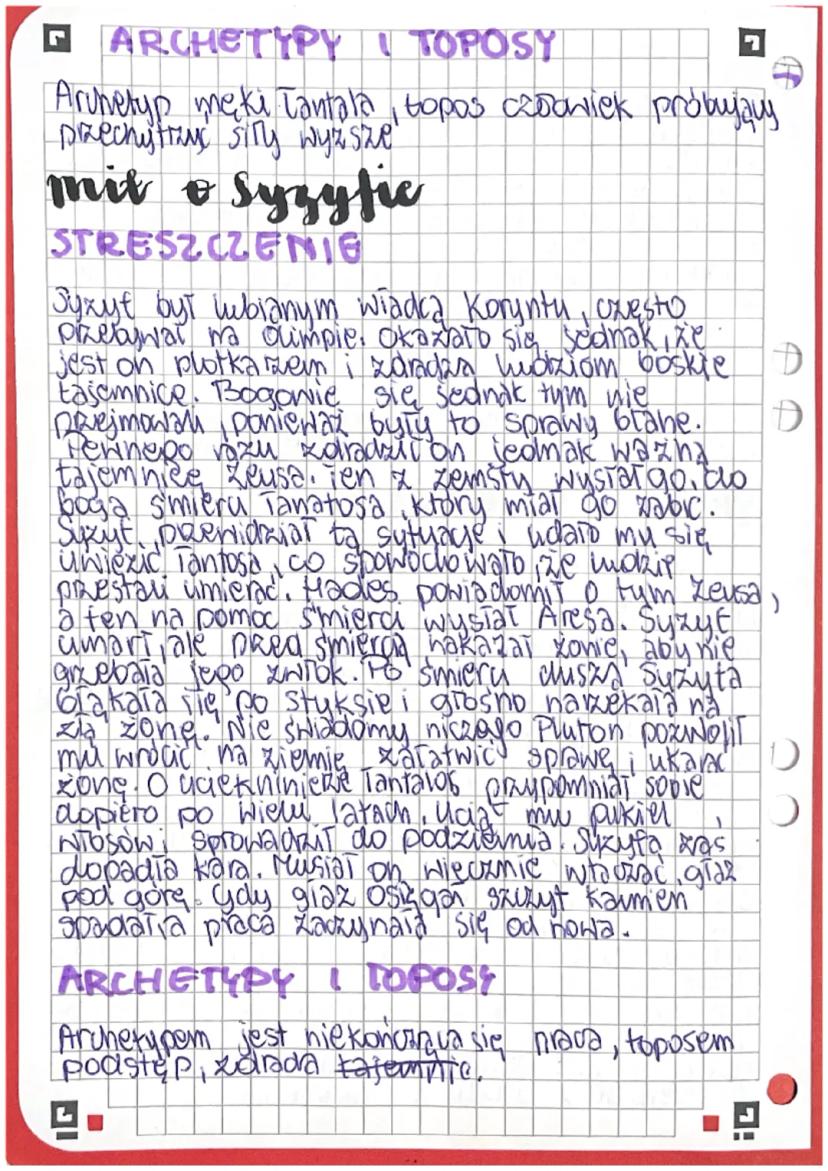 ARCHETYPY I TOPOSY
Archetyp męki Tantala, topos człowiek próbujący
przechytrzyć siły wyższe
mit o Syzyfie
STRESZCZENIE
Syzyf był lubianym władcą Koryntu, często
przebywał na Olimpie. Okazało się jednak, że
jest on plotkarzem i zdradza ludziom boskie
tajemnice. Bogowie się jednak tym nie
przejmowali, ponieważ były to sprawy błahe.
Pewnego razu zdradził on jednak ważną
tajemnicę Zeusa. Ten z zemsty wysłał go do
boga śmierci Tanatosa, który miał go zabić.
Syzyf przewidział tą sytuację i udało mu się
uwięzić Tantosa, co spowodowało, że ludzie
przestali umierać. Hades powiadomił o tym Zeusa,
a ten na pomoc śmierci wysłał Aresa. Syzyf
umarł, ale przed śmiercią nakazał żonie, aby nie
grzebała jego zwłok. Po śmierci dusza Syzyfa
błąkała się po Styksie i głośno narzekała na
złą żonę. Nie świadomy niczego Pluton pozwolił
mu wrócić na ziemię załatwić sprawę i ukarać
żonę. O uciekninierze Tantalos przypomniał sobie
dopiero po wielu latach, uciął mu pukiel
włosów i sprowadził do podziemia. Syzyfa zaś
dopadła kara. Musiał on wiecznie wtaczać głaz
pod górę. Gdy głaz osiągał szczyt kamień
spadał, a praca zaczynała się od nowa.
ARCHETYPY I TOPOSY
Archetypem jest niekończąca się praca, toposem
podstęp, zdrada tajemnic.